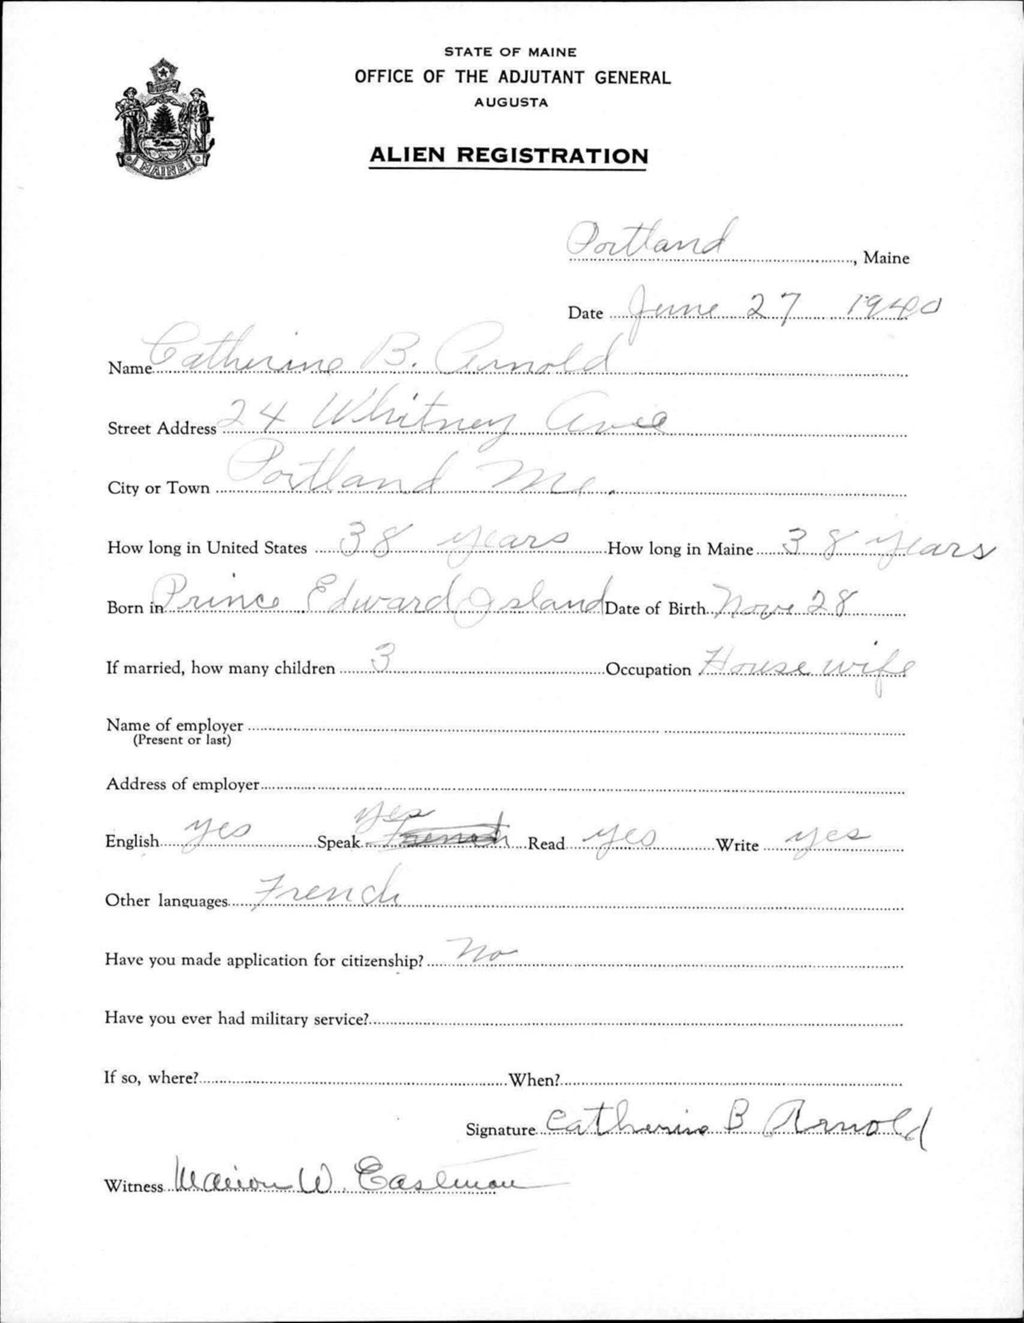 STATE OF MAINE
OFFICE OF THE ADJUTANT GENERAL
AUGUSTA
ALIEN REGISTRATION
MAINE
Portland, Maine
Date June 27 1940
Name Catherine B. Arnold
Street Address 24 Whitney Ave
City or Town Portland Me.
How long in United States 38 years How long in Maine 38 years
Born in Prince Edward Island Date of Birth Nov 28
If married, how many children 3 Occupation Housewife
Name of employer
(Present or last)
Address of employer
English yes Speak yes French Read yes Write yes
Other languages French
Have you made application for citizenship? No
Have you ever had military service?
If so, where? When?
Signature Catherine B Arnold
Witness Marion W. Eastman